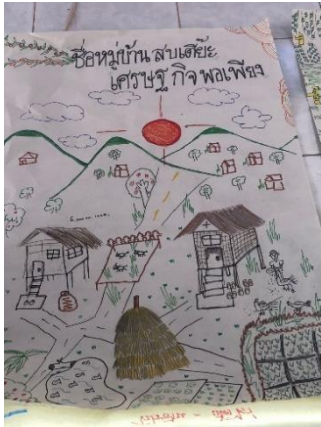 ชื่อหมู่บ้าน สบเตี๊ยะ
เศรษฐกิจพอเพียง